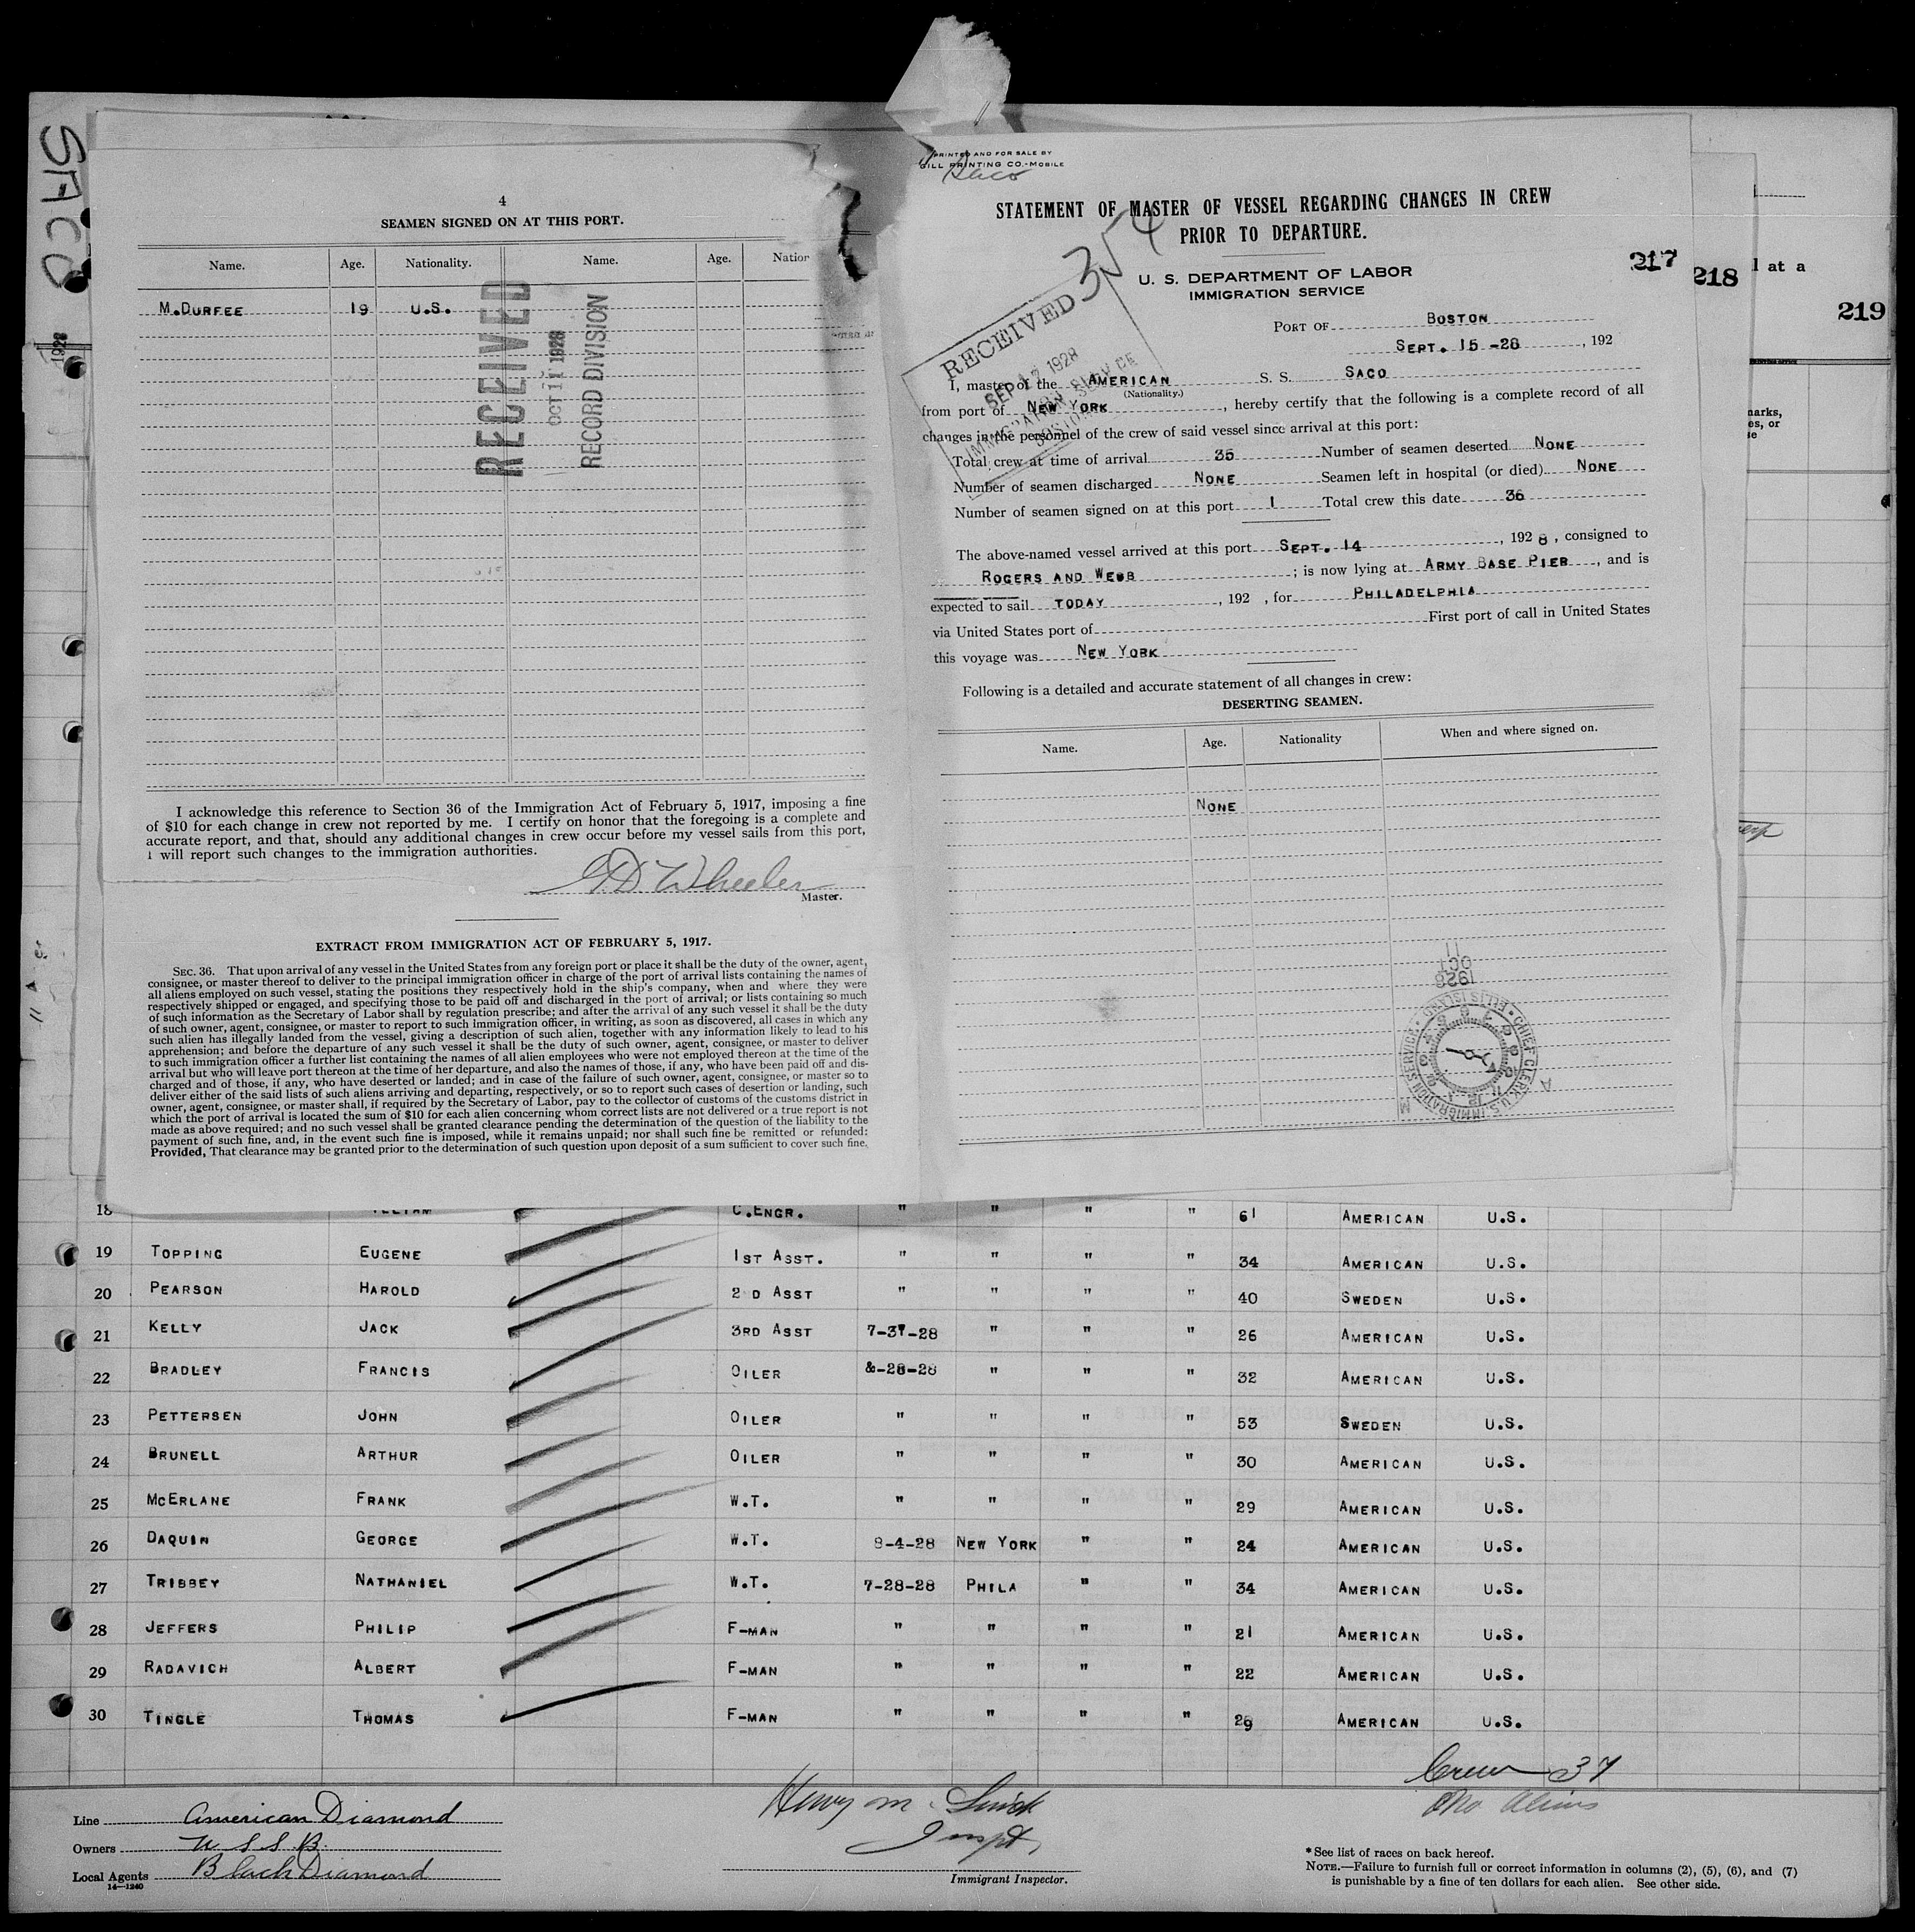 SACO
1928
4
SEAMEN SIGNED ON AT THIS PORT.
Name. Age. Nationality. Name. Age. Nation
M.DURFEE 19 U.S.
RECEIVED
OCT 11 1928
RECORD DIVISION
I acknowledge this reference to Section 36 of the Immigration Act of February 5, 1917, imposing a fine
of $10 for each change in crew not reported by me. I certify on honor that the foregoing is a complete and
accurate report, and that, should any additional changes in crew occur before my vessel sails from this port,
I will report such changes to the immigration authorities.
G.D. Wheeler
Master.
EXTRACT FROM IMMIGRATION ACT OF FEBRUARY 5, 1917.
SEC. 36. That upon arrival of any vessel in the United States from any foreign port or place it shall be the duty of the owner, agent,
consignee, or master thereof to deliver to the principal immigration officer in charge of the port of arrival lists containing the names of
all aliens employed on such vessel, stating the positions they respectively hold in the ship's company, when and where they were
respectively shipped or engaged, and specifying those to be paid off and discharged in the port of arrival; or lists containing so much
of such information as the Secretary of Labor shall by regulation prescribe; and after the arrival of any such vessel it shall be the duty
of such owner, agent, consignee, or master to report to such immigration officer, in writing, as soon as discovered, all cases in which any
such alien has illegally landed from the vessel, giving a description of such alien, together with any information likely to lead to his
apprehension; and before the departure of any such vessel it shall be the duty of such owner, agent, consignee, or master to deliver
to such immigration officer a further list containing the names of all alien employees who were not employed thereon at the time of the
arrival but who will leave port thereon at the time of her departure, and also the names of those, if any, who have been paid off and dis-
charged and of those, if any, who have deserted or landed; and in case of the failure of such owner, agent, consignee, or master so to
deliver either of the said lists of such aliens arriving and departing, respectively, or so to report such cases of desertion or landing, such
owner, agent, consignee, or master shall, if required by the Secretary of Labor, pay to the collector of customs of the customs district in
which the port of arrival is located the sum of $10 for each alien concerning whom correct lists are not delivered or a true report is not
made as above required; and no such vessel shall be granted clearance pending the determination of the question of the liability to the
payment of such fine, and, in the event such fine is imposed, while it remains unpaid; nor shall such fine be remitted or refunded:
Provided, That clearance may be granted prior to the determination of such question upon deposit of a sum sufficient to cover such fine.
PRINTED AND FOR SALE BY
GILL PRINTING CO.-MOBILE
Saco
STATEMENT OF MASTER OF VESSEL REGARDING CHANGES IN CREW
PRIOR TO DEPARTURE.
354
U. S. DEPARTMENT OF LABOR
IMMIGRATION SERVICE
217
218
219
l at a
RECEIVED
SEP 17 1928
IMMIGRATION SERVICE
BOSTON
PORT OF BOSTON
SEPT. 15 -28, 192
I, master of the AMERICAN S. S. SACO
(Nationality.)
from port of NEW YORK, hereby certify that the following is a complete record of all
changes in the personnel of the crew of said vessel since arrival at this port:
Total crew at time of arrival 35 Number of seamen deserted NONE
Number of seamen discharged NONE Seamen left in hospital (or died) NONE
Number of seamen signed on at this port 1 Total crew this date 36
The above-named vessel arrived at this port SEPT. 14, 1928, consigned to
ROGERS AND WEBB; is now lying at ARMY BASE PIER, and is
expected to sail TODAY, 192 , for PHILADELPHIA
via United States port of First port of call in United States
this voyage was NEW YORK
Following is a detailed and accurate statement of all changes in crew:
DESERTING SEAMEN.
Name. Age. Nationality When and where signed on.
NONE
1928
OCT
11
CHIEF CLERK U.S. IMMIGRATION SERVICE ELLIS ISLAND
A
M
marks,
es, or
18 C.ENGR. " " " " 61 AMERICAN U.S.
19 TOPPING EUGENE 1ST ASST. " " " " 34 AMERICAN U.S.
20 PEARSON HAROLD 2 D ASST " " " " 40 SWEDEN U.S.
21 KELLY JACK 3RD ASST 7-31-28 " " " 26 AMERICAN U.S.
22 BRADLEY FRANCIS OILER &-28-28 " " " 32 AMERICAN U.S.
23 PETTERSEN JOHN OILER " " " " 53 SWEDEN U.S.
24 BRUNELL ARTHUR OILER " " " " 30 AMERICAN U.S.
25 MCERLANE FRANK W.T. " " " " 29 AMERICAN U.S.
26 DAQUIN GEORGE W.T. 8-4-28 NEW YORK " " 24 AMERICAN U.S.
27 TRIBBEY NATHANIEL W.T. 7-28-28 PHILA " " 34 AMERICAN U.S.
28 JEFFERS PHILIP F-MAN " " " " 21 AMERICAN U.S.
29 RADAVICH ALBERT F-MAN " " " " 22 AMERICAN U.S.
30 TINGLE THOMAS F-MAN " " " " 29 AMERICAN U.S.
Crew 37
No Aliens
Line American Diamond
Owners U S S B.
Local Agents Black Diamond
14—1240
Henry M.
Inspt,
Immigrant Inspector.
*See list of races on back hereof.
NOTE.—Failure to furnish full or correct information in columns (2), (5), (6), and (7)
is punishable by a fine of ten dollars for each alien. See other side.